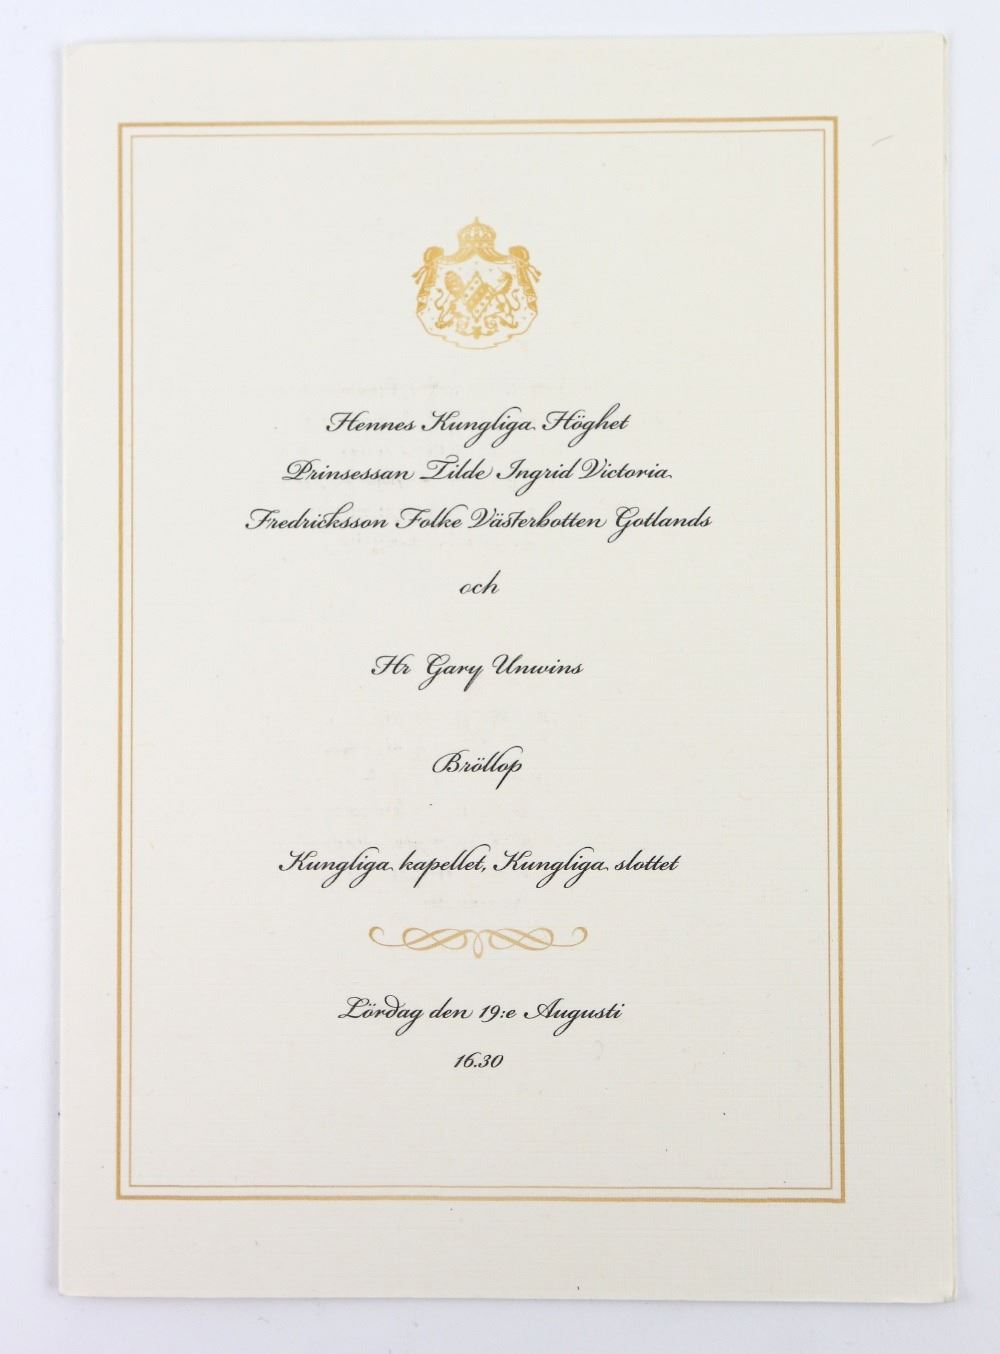 Hennes Kungliga Höghet
Prinsessan Tilde Ingrid Victoria
Fredricksson Folke Västerbotten Gotlands
och
Hr Gary Unwins
Bröllop
Kungliga kapellet, Kungliga slottet
Lördag den 19:e Augusti
16.30